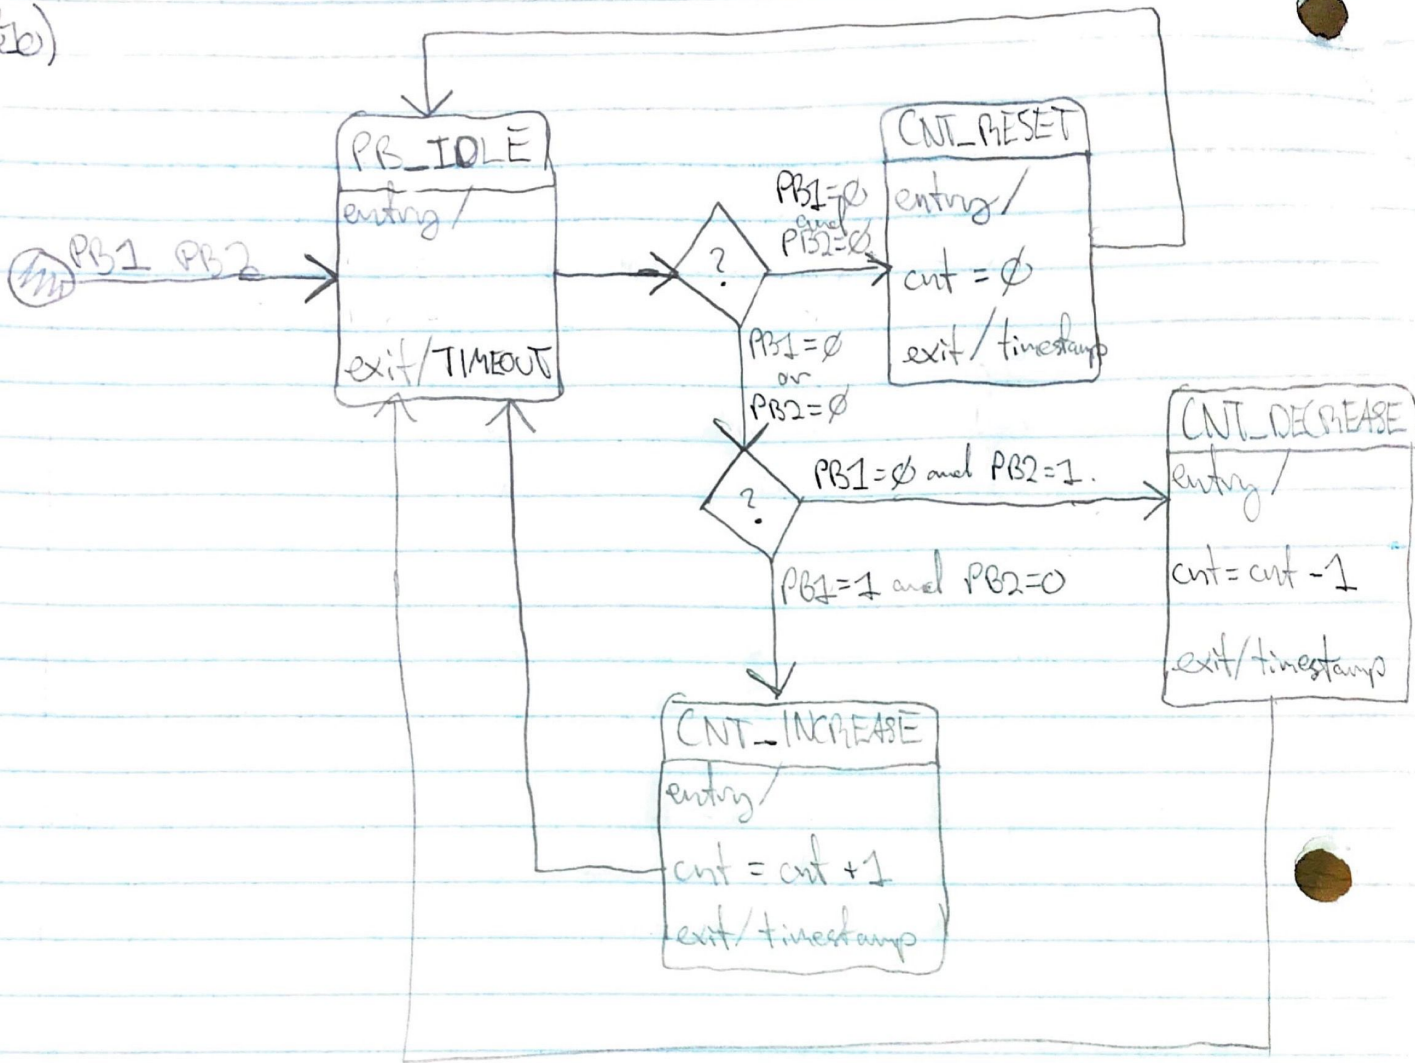 PB1 PB2
PB_IDLE
entry/
exit/TIMEOUT
?
PB1=∅
and
PB2=∅
CNT_RESET
entry/
cnt = ∅
exit/timestamp
PB1=∅
or
PB2=∅
?
PB1=∅ and PB2=1.
CNT_DECREASE
entry/
cnt=cnt-1
exit/timestamp
PB1=1 and PB2=0
CNT_INCREASE
entry/
cnt = cnt +1
exit/timestamp